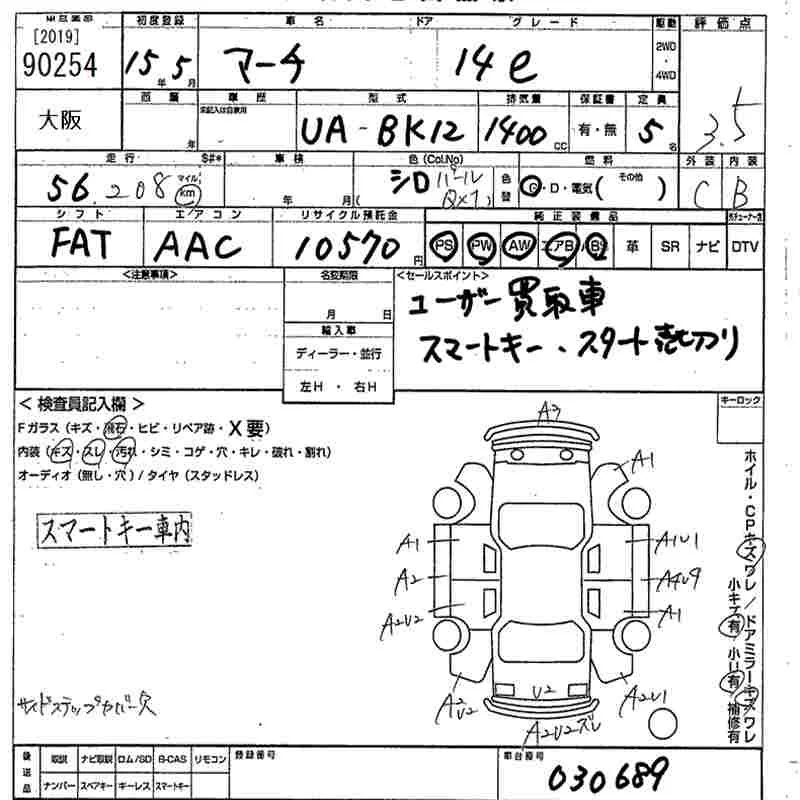 [2019]
90254
初度登録 車名 ドア グレード 駆動 評価点
15年5月 マーチ 14e 2WD・4WD 3.5
大阪
車歴 型式 排気量 保証書 定員
年 UA-BK12 1400cc 有・無 5名
走行 S#* 車検 色(Col.No) 燃料 外装 内装
56,208 マイル km 年 月 シロ パール 色替 G・D・電気( その他 ) C B
シフト エアコン リサイクル預託金 純正装備品
FAT AAC 10570円 PS PW AW エアB ABS 革 SR ナビ DTV
<注意事項> 名変期限 <セールスポイント>
月 日 ユーザー買取車
輸入車 スマートキー、スタート
ディーラー・並行
左H・右H
<検査員記入欄> キーロック
Fガラス(キズ・飛石・ヒビ・リペア跡・X要)
内装(キズ・スレ・汚れ・シミ・コゲ・穴・キレ・破れ・割れ)
オーディオ(無し・穴)/タイヤ(スタッドレス)
スマートキー車内
A3
A1
A1 A1U1
A2 A4U9
A2U2 A1
A2U2 U2 A2U1
A2U2ズレ
ホイル・CPキズワレ/ドアミラーキズワレ
小キズ有 小U有 補修有
サイドステップカバー欠
後送品 取説 ナビ取説 ロム/SD B-CAS リモコン 登録番号 車台番号
ナンバー スペアキー キーレス スマートキー 030689